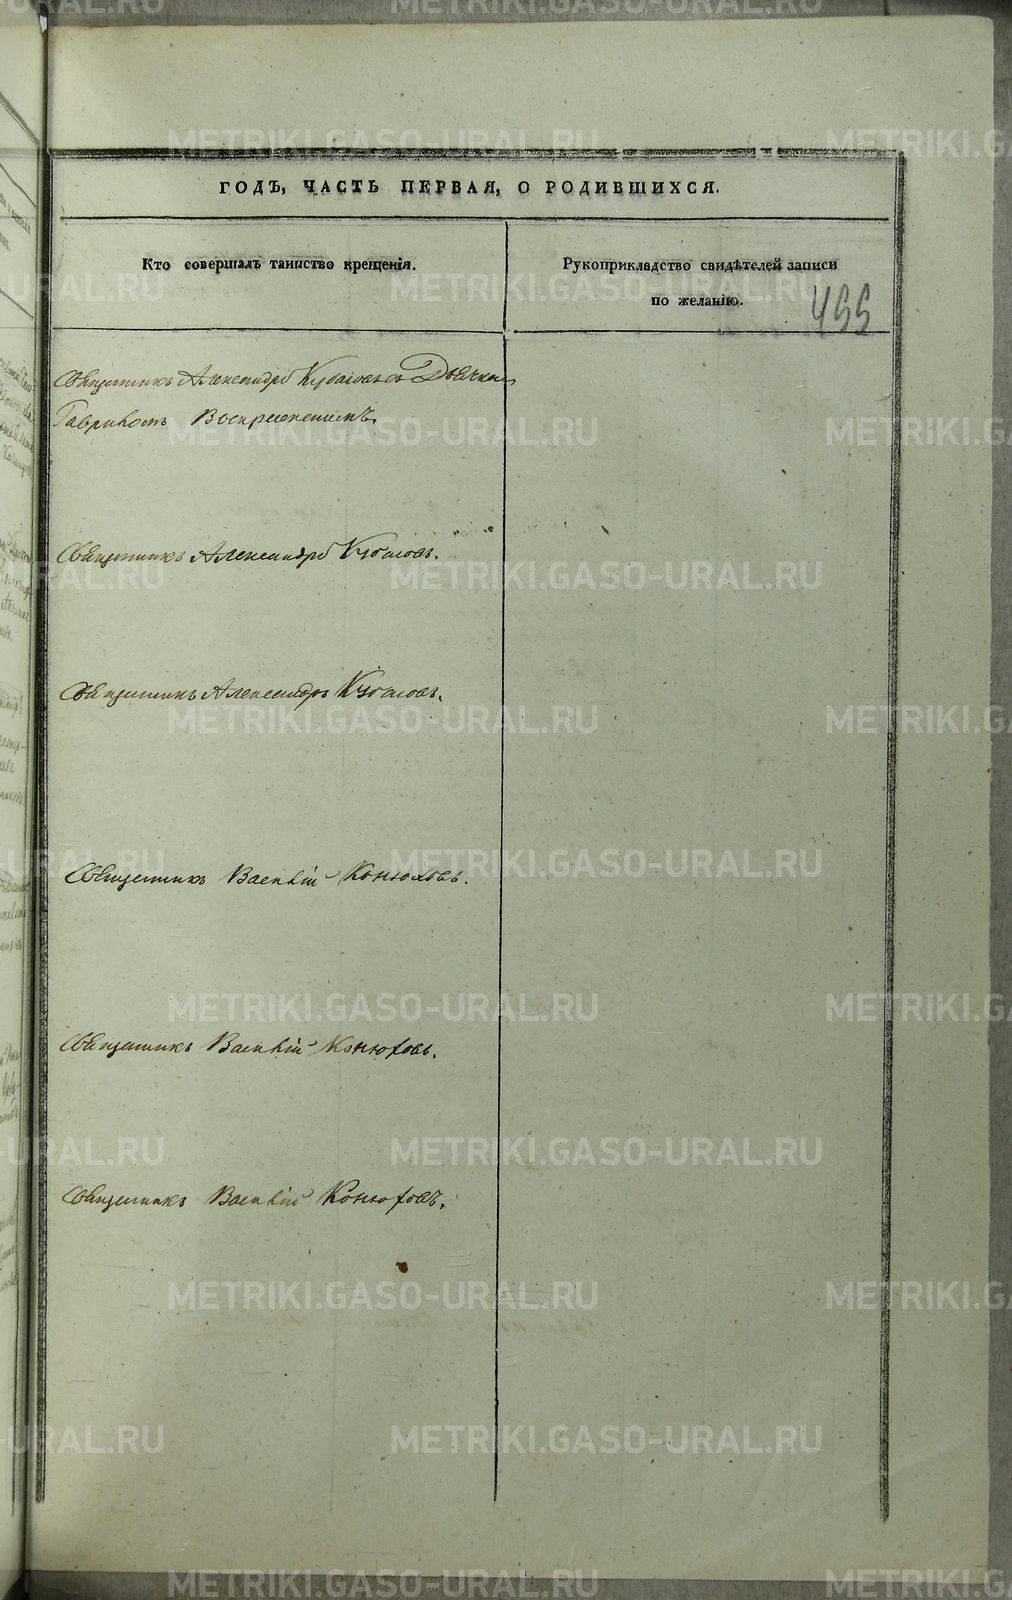 ГОДЪ, ЧАСТЬ ПЕРВАЯ, О РОДИВШИХСЯ.
Кто совершалъ таинство крещенія.
Рукоприкладство свидѣтелей записи
по желанію.
455
Священникъ Александръ Кубасовъ съ Дьячкомъ
Гавриломъ Воскресенскимъ.
Священникъ Александръ Кубасовъ.
Священникъ Александръ Кубасовъ.
Священникъ Василій Конюховъ.
Священникъ Василій Конюховъ.
Священникъ Василій Конюховъ.
METRIKI.GASO-URAL.RU